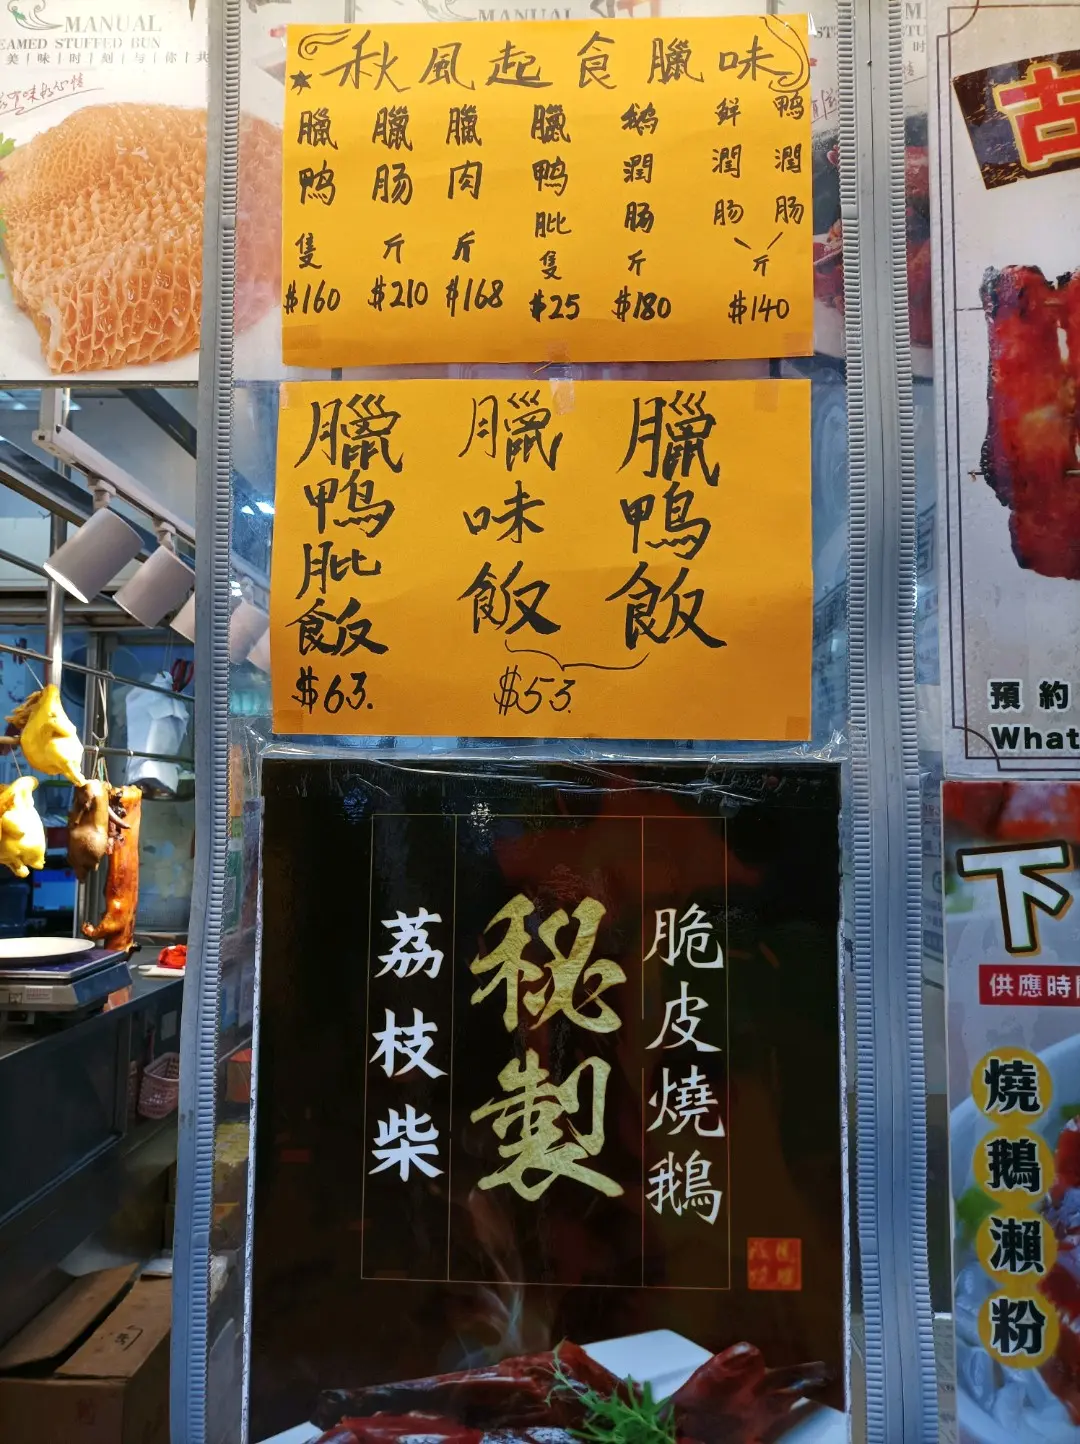 MANUAL
EAMED STUFFED BUN
美味时刻与你共
MANUAL
秋風起食臘味
臘鸭 隻 $160
臘肠 斤 $210
臘肉 斤 $168
臘鸭肶 隻 $25
鹅潤肠 斤 $180
鲜潤肠
鸭潤肠
斤 $140
臘鴨肶飯
$63.
臘味飯
臘鴨飯
$53.
荔枝柴
秘製
脆皮燒鵝
古
預約
What
下
供應時間
燒鵝瀨粉